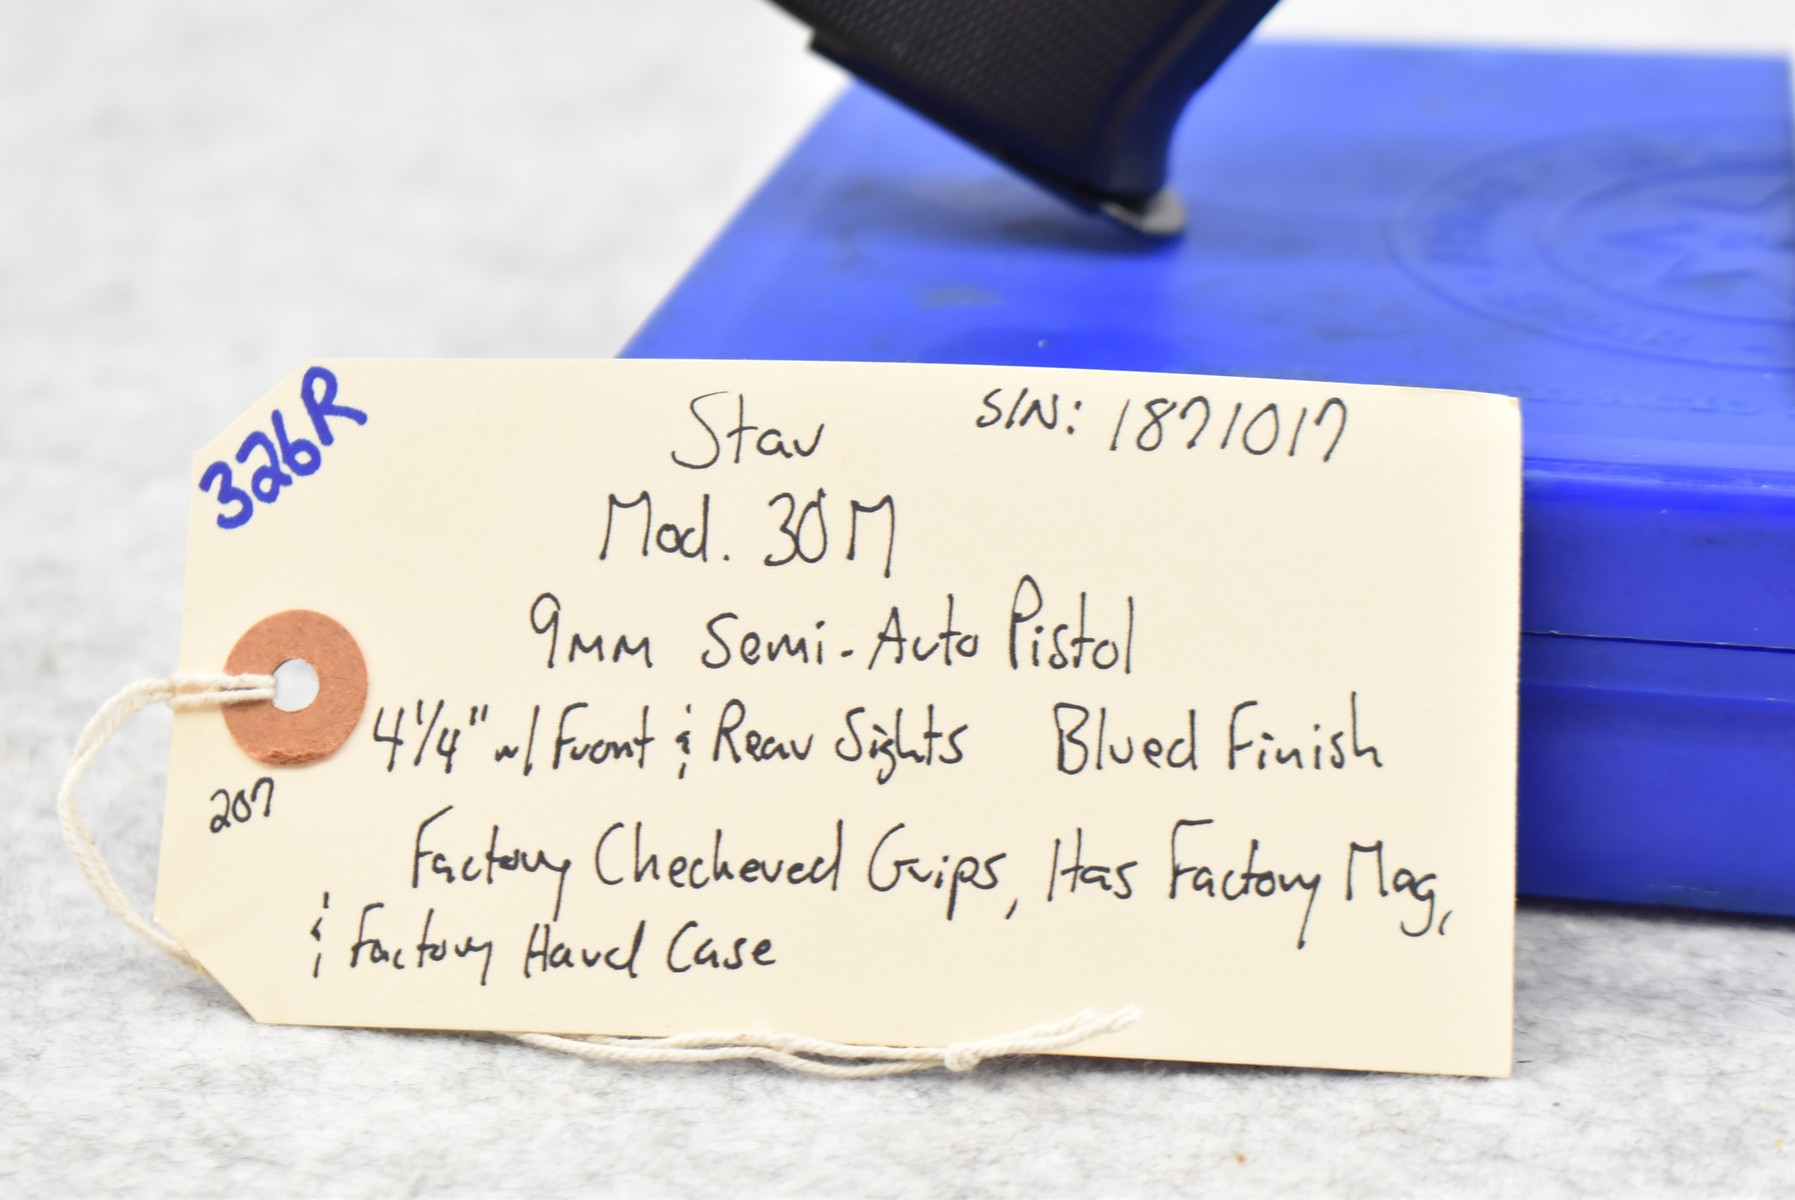 326R
Star S/N: 1871017
Mod. 30M
9mm Semi-Auto Pistol
4 1/4" w/ Front & Rear Sights Blued Finish
207
Factory Checkered Grips, Has Factory Mag,
& Factory Hard Case